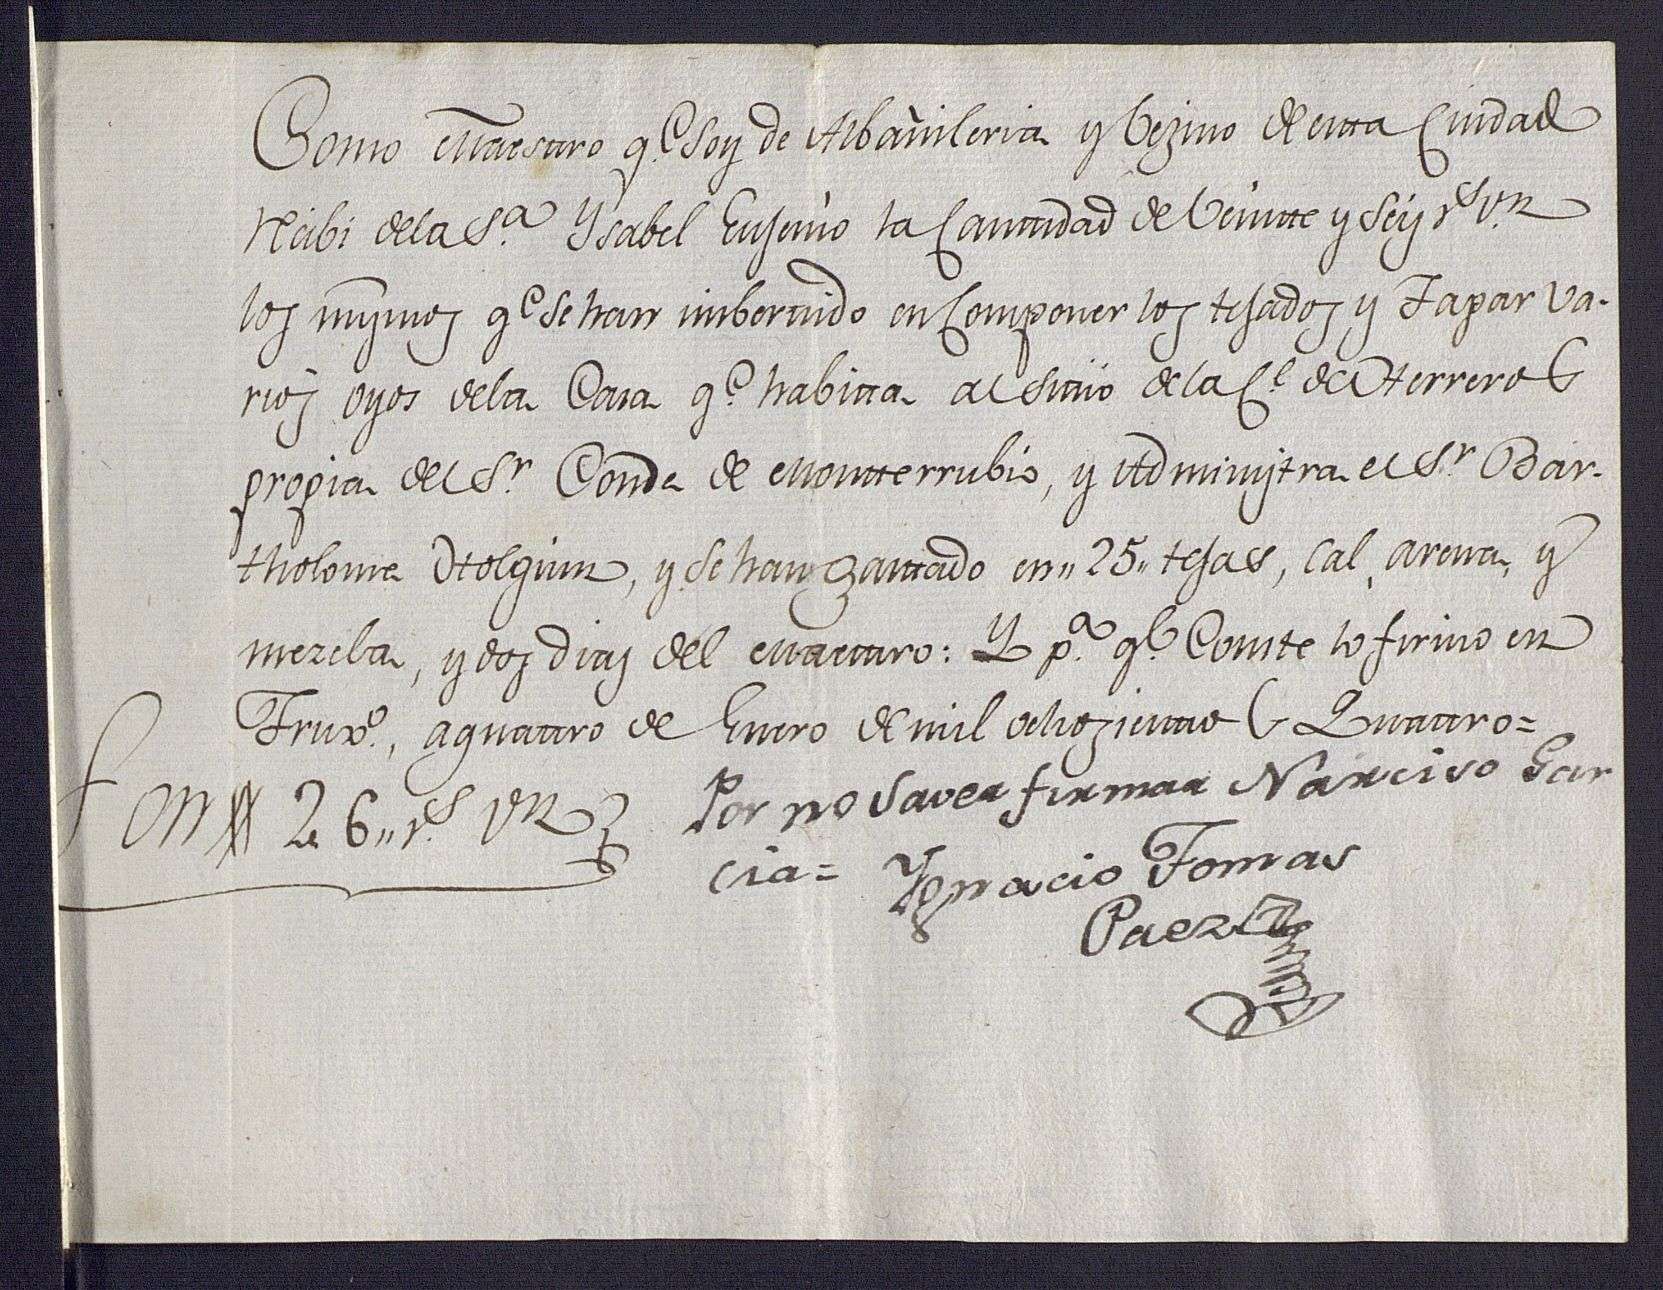 Como Maestro q.e soy de Albañileria y Vezino de esta Ciudad
Rezibi de la S.ra Ysabel Eusevio la Cantidad de Veinte y seis r.s v.n
los mismos q.e se han imbertido en Componer los tejados y Tapar va-
rios oyos de la Casa q.e habita al sitio de la C.e de Herreros
propia del S.r Conde de Monterrubio, y Administra el S.r Bar-
tholome Holguin, y se han gastado en 25 tejas, cal, arena, y
mezcla, y dos dias del Maestro: Y p.a q.e Conste lo firmo en
Trux.o, a quatro de Enero de mil ochozientos Quatro=
Son 26 r.s v.n Por no saver firmar Narciso Gar
cia= Ygnacio Tomas
Paez